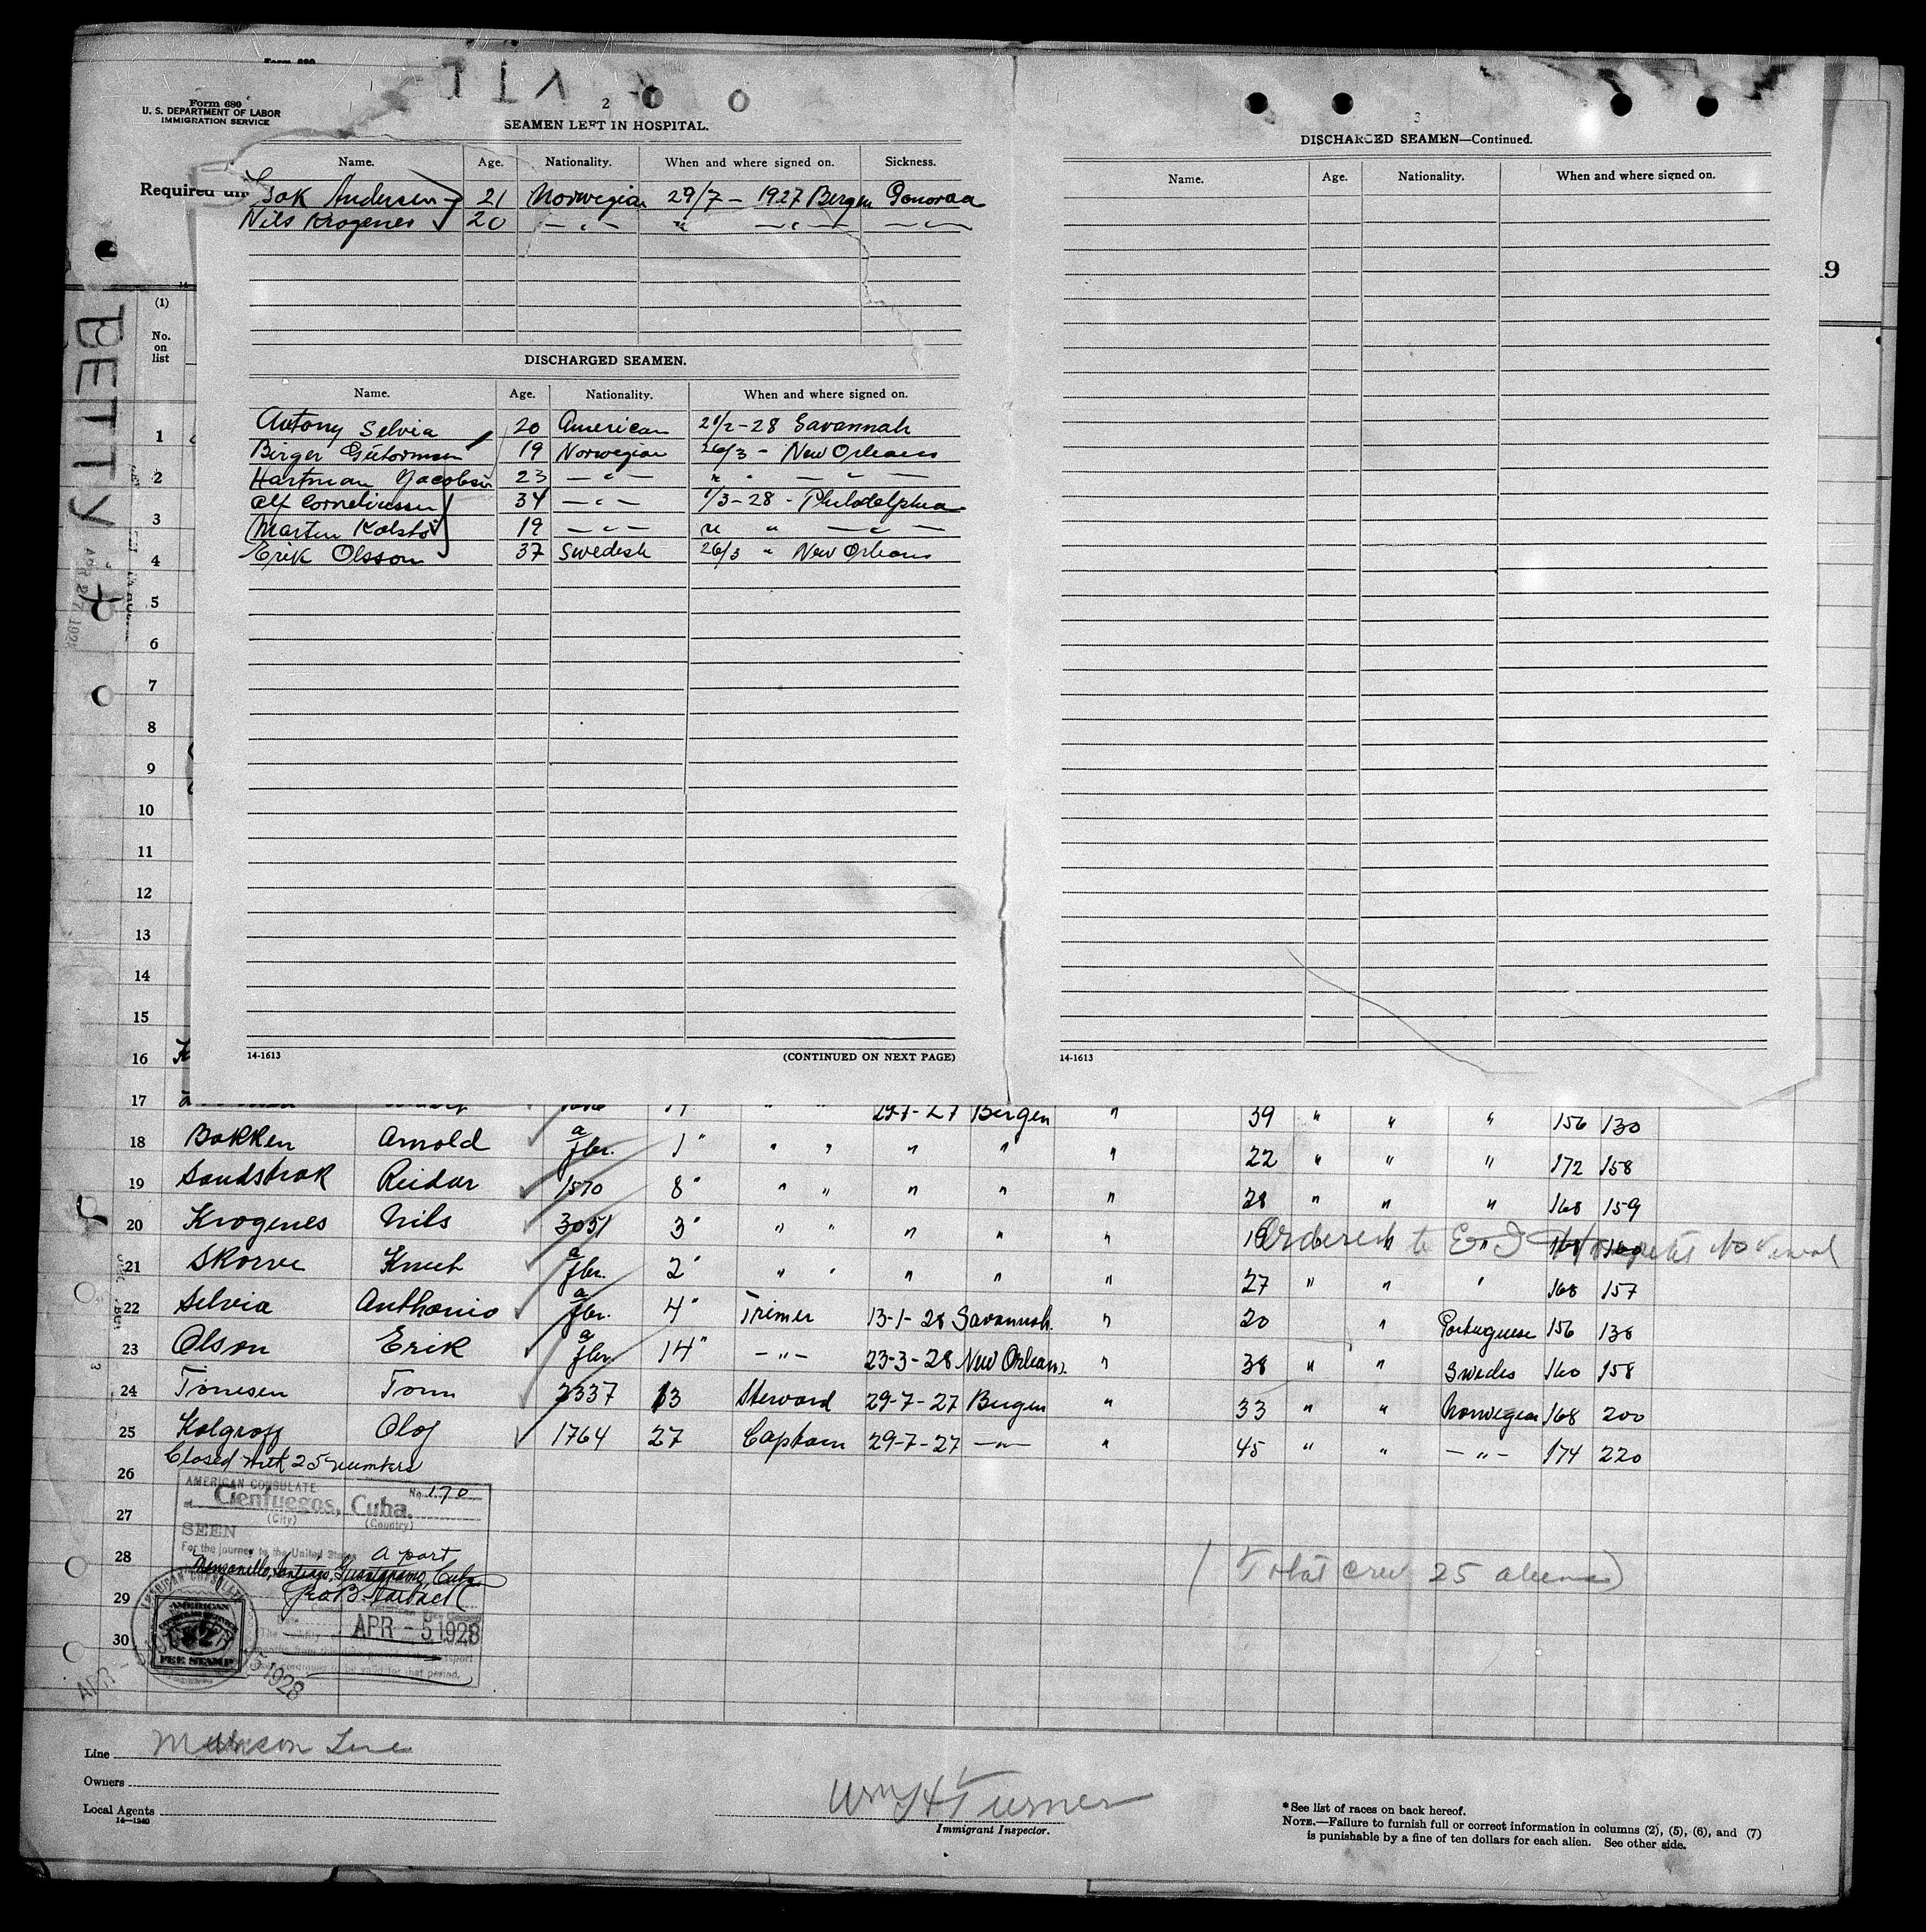 Form 680
U. S. DEPARTMENT OF LABOR
IMMIGRATION SERVICE
2
SEAMEN LEFT IN HOSPITAL.
Name. Age. Nationality. When and where signed on. Sickness.
Andersen 21 Norwegian 29/7 – 1927 Bergen
Nils Krogenes 20 — " — " — " — — " —
DISCHARGED SEAMEN.
Name. Age. Nationality. When and where signed on.
Antony Selvia 20 American 21/2 – 28 Savannah
Birger 19 Norwegian 26/3 – New Orleans
Hartman Jacobsen 23 — " — " " — " —
Alf Corneliussen 34 — " — 1/3 – 28 – Philadelphia
Marten Kolstö 19 — " — " " — " —
Erik Olsson 37 Swedish 26/3 " New Orleans
14-1613 (CONTINUED ON NEXT PAGE)
3
DISCHARGED SEAMEN—Continued.
Name. Age. Nationality. When and where signed on.
14-1613
Required un
19
BETTY
APR 27 1928
(1)
No.
on
list
1
2
3
4
5
6
7
8
9
10
11
12
13
14
15
16 K
17 29-7-27 Bergen " 39 " " " 156 130
18 Bakken Arnold a/fbr. 1 " " " " " " 22 " " " 172 158
19 Sandstrak Reidar 1570 8 " " " " " " 28 " " " 168 159
20 Krogenes Nils 3051 3 " " " " " " 19 " " 168 160
Ordered to E I Hospital No Vineral
21 Skorve Knut a/fbr. 2 " " " " " " 27 " " " 168 157
22 Selvia Anthonio a/fbr. 4 " Trimer 13-1-28 Savannah. " 20 " Portuguese 156 138
23 Olson Erik a/fbr. 14 " — " — 23-3-28 New Orleans. " 38 " " Swedes 160 158
24 Tonesen Tom 2337 13 Steward 29-7-27 Bergen " 33 " " Norwegian 168 200
25 Kolgroff Olof 1764 27 Captain 29-7-27 — " — " 45 " " — " — 174 220
Closed with 25 numbers
26
27
28
29
30
AMERICAN CONSULATE No. 170
at Cienfuegos, Cuba.
(City) (Country)
SEEN
For the journey to the United States A port
Manzanillo, Santiago, Guantanamo, Cuba
APR - 5 1928
AMERICAN
FEE STAMP
APR - 5 1928
(Total crew 25 aliens)
Line Munson Line
Owners
Local Agents
14—1240
Wm H Turner
Immigrant Inspector.
*See list of races on back hereof.
NOTE.—Failure to furnish full or correct information in columns (2), (5), (6), and (7)
is punishable by a fine of ten dollars for each alien. See other side.